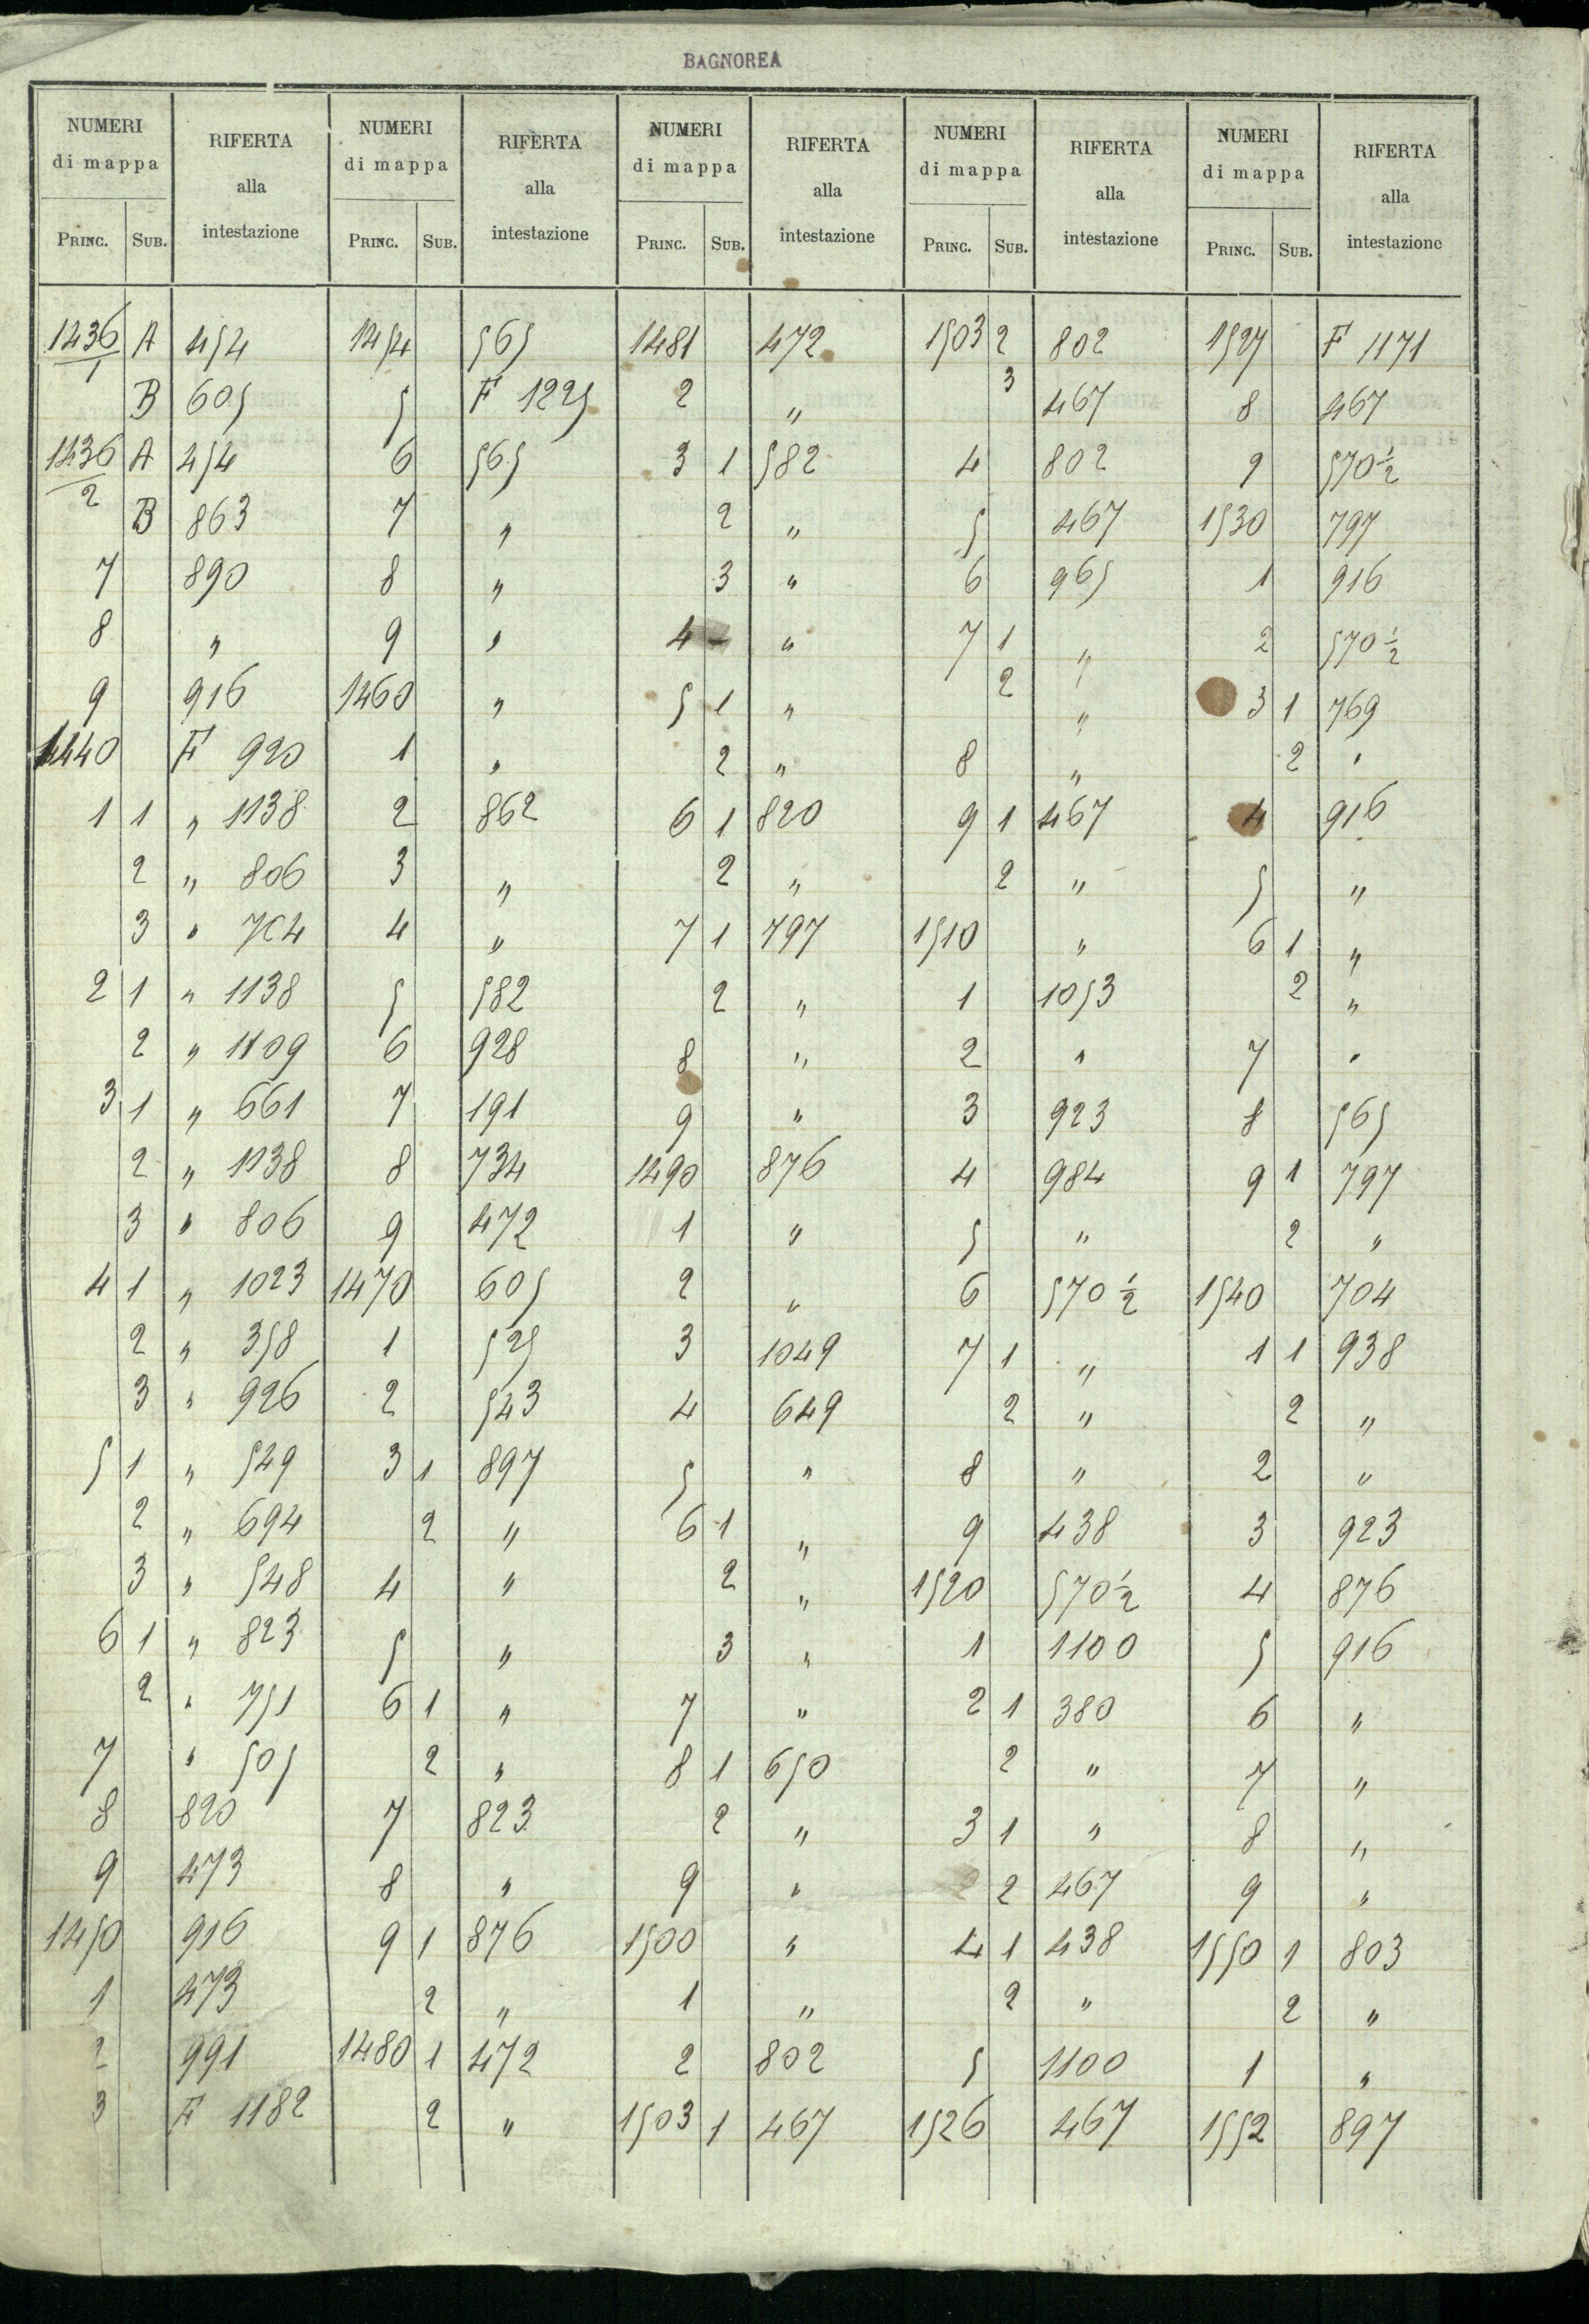 BAGNOREA
NUMERI di mappa RIFERTA alla intestazione NUMERI di mappa RIFERTA alla intestazione NUMERI di mappa RIFERTA alla intestazione NUMERI di mappa RIFERTA alla intestazione NUMERI di mappa RIFERTA alla intestazione
PRINC. SUB. PRINC. SUB. PRINC. SUB. PRINC. SUB. PRINC. SUB.
1436/1 A 454 1454 565 1481 472 1503 2 802 1527 F 1171
B 605 5 F 1225 2 " 3 467 8 467
1436/2 A 454 6 565 3 1 582 4 802 9 570 1/2
B 863 7 " 2 " 5 467 1530 797
7 890 8 " 3 " 6 965 1 916
8 " 9 " 4 " 7 1 " 2 570 1/2
9 916 1460 " 5 1 " 2 " 3 1 769
1440 F 920 1 " 2 " 8 " 2 "
1 1 " 1138 2 862 6 1 820 9 1 467 4 916
2 " 806 3 " 2 " 2 " 5 "
3 " 704 4 " 7 1 797 1510 " 6 1 "
2 1 " 1138 5 582 2 " 1 1053 2 "
2 " 1109 6 928 8 " 2 " 7 "
3 1 " 661 7 191 9 " 3 923 8 565
2 " 1138 8 734 1490 876 4 984 9 1 797
3 " 806 9 472 1 " 5 " 2 "
4 1 " 1023 1470 605 2 " 6 570 1/2 1540 704
2 " 358 1 525 3 1049 7 1 " 1 1 938
3 " 926 2 543 4 649 2 " 2 "
5 1 " 549 3 1 897 5 " 8 " 2 "
2 " 694 2 " 6 1 " 9 438 3 923
3 " 548 4 " 2 " 1520 570 1/2 4 876
6 1 " 823 5 " 3 " 1 1100 5 916
2 " 751 6 1 " 7 " 2 1 380 6 "
7 " 505 2 " 8 1 650 2 " 7 "
8 820 7 823 2 " 3 1 " 8 "
9 473 8 " 9 " 2 467 9 "
1450 916 9 1 876 1500 " 4 1 438 1550 1 803
1 473 2 " 1 " 2 " 2 "
2 991 1480 1 472 2 802 5 1100 1 "
3 F 1182 2 " 1503 1 467 1526 467 1552 897